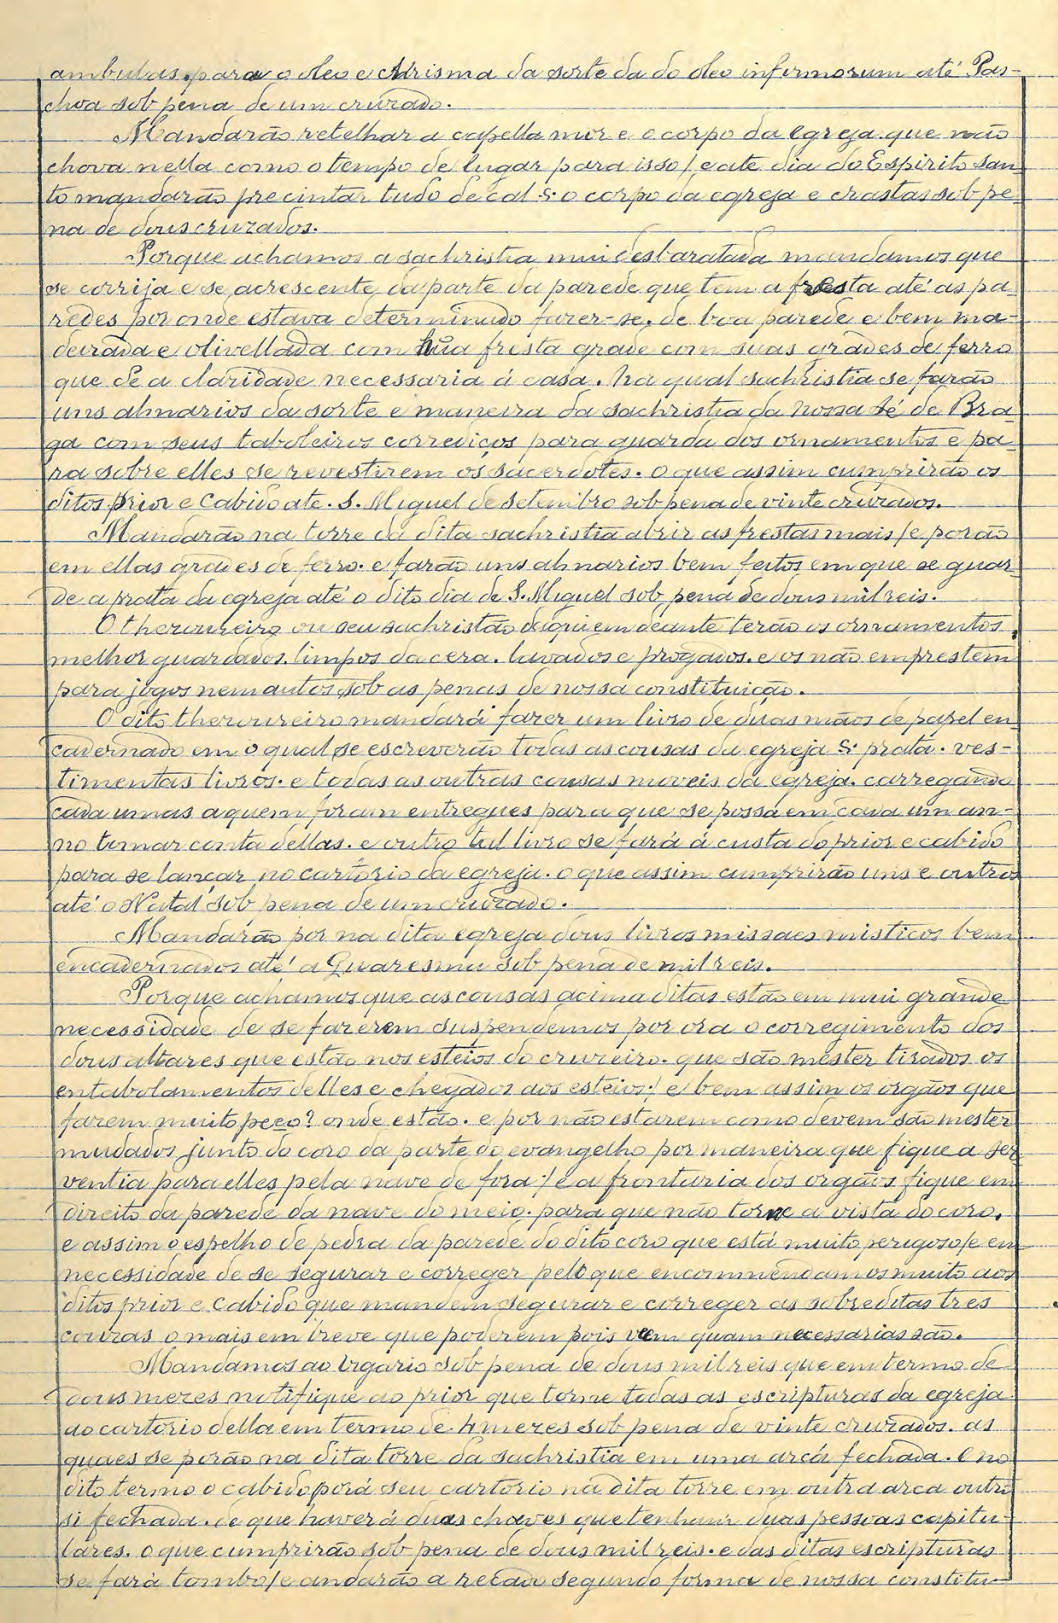 ambulas para o oleo e chrisma da sorte da do oleo infirmorum até Pas-
choa sob pena de um cruzado.
Mandarão retelhar a capella mor e o corpo da egreja que não
chova nella como o tempo de lugar para isso / e ate dia do Espirito San
to mandarão precintar tudo de cal S. o corpo da egreja e crastas sob pe-
na de dous cruzados.
Porque achamos a sachristia mui desbaratada mandamos que
se corrija e se acrescente da parte da parede que tem a fresta até as pa-
redes por onde estava determinado fazer-se, de boa parede e bem ma-
deirada e olivellada com hũa fresta grade com suas grades de ferro
que dê a claridade necessaria á casa. Na qual sachristia se farão
uns almarios da sorte e maneira da sachristia da nossa Sé de Bra-
ga com seus taboleiros corrediços para guarda dos ornamentos e pa-
ra sobre elles se revestirem os sacerdotes. O que assim cumprirão os
ditos prior e Cabido ate. S. Miguel de setembro sob pena de vinte cruzados.
Mandarão na torre da dita sachristia abrir as frestas mais / e porão
em ellas grades de ferro. e farão uns almarios bem feitos em que se guar-
de a prata da egreja até o dito dia de S. Miguel sob pena de dous mil reis.
O thezoureiro ou seu sachristão daqui em deante terão os ornamentos
melhor guardados. limpos da cera. lavados e pregados. e os não emprestem
para jogos nem autos sob as penas de nossa constituição.
O dito thezoureiro mandará fazer um livro de duas mãos de papel en
cadernado em o qual se escreverão todas as cousas da egreja S. prata. ves-
timentas livros. e todas as outras cousas moveis da egreja. carregando
cada umas a quem foram entregues para que se possa em cada um an-
no tomar conta dellas. e outro tal livro se fará á custa do prior e cabido
para se lançar no cartório da egreja. o que assim cumprirão uns e outros
até o Natal sob pena de um cruzado.
Mandarão por na dita egreja dous livros missaes misticos bem
encadernados até a Quaresma sob pena de mil reis.
Porque achamos que as cousas acima ditas estão em mui grande
necessidade de se fazerem suspendemos por ora o corregimento dos
dous altares que estão nos esteios do cruzeiro. que são mester tirados os
entabolamentos delles e chegados aos esteios / e bem assim os orgãos que
fazem muito peço? onde estão. e por não estarem como devem são mester
mudados junto do coro da parte do evangelho por maneira que fique a ser
ventia para elles pela nave de fora / e a frontaria dos orgãos fique em
direito da parede da nave do meio. para que não torne a vista do coro.
e assim o espelho de pedra da parede do dito coro que está muito perigoso / e em
necessidade de se segurar e correger pelo que encommendamos muito aos
ditos prior e Cabido que mandem segurar e correger as sobreditas tres
couzas o mais em breve que poderem pois vem quam necessarias são.
Mandamos ao vigario sob pena de dous mil reis que em termo de
dous mezes notifique ao prior que torne todas as escripturas da egreja
ao cartorio della em termo de 4 mezes sob pena de vinte cruzados. as
quaes se porão na dita torre da sachristia em uma arca fechada. E no
dito termo o cabido porá seu cartorio na dita torre em outra arca outro
si fechada. de que haverá duas chaves que tenham duas pessoas capitu-
lares. o que cumprirão sob pena de dous mil reis. e das ditas escripturas
se fará tombo / e andarão a recado segundo forma de nossa constitu-